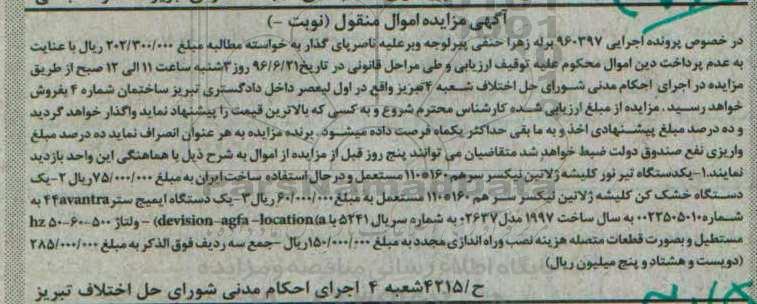 آگهی مزایده اموال منقول (نوبت -)
در خصوص پرونده اجرایی ۹۶۰۳۹۷ برله زهرا حنفی پیرلوجه وبرعلیه ناصرپای گذار به خواسته مطالبه مبلغ ۲۰۲/۳۰۰/۰۰۰ ریال با عنایت
به عدم پرداخت دین اموال محکوم علیه توقیف ارزیابی و طی مراحل قانونی در تاریخ ۹۶/۶/۲۱ روز ۳شنبه ساعت ۱۱ الی ۱۲ صبح از طریق
مزایده در اجرای احکام مدنی شورای حل اختلاف شعبه ۴ تبریز واقع در اول لیمصر داخل دادگستری تبریز ساختمان شماره ۴ بفروش
خواهد رسید. مزایده از مبلغ ارزیابی شده کارشناس محترم شروع و به کسی که بالاترین قیمت را پیشنهاد نماید واگذار خواهد گردید
و ده درصد مبلغ پیشنهادی اخذ و به ما بقی حداکثر یکماه فرصت داده میشود. برنده مزایده به هر عنوان انصراف نماید ده درصد مبلغ
واریزی نفع صندوق دولت ضبط خواهد شد متقاضیان می توانند پنج روز قبل از مزایده از اموال به شرح ذیل با هماهنگی این واحد بازدید
نمایند.۱-یکدستگاه تیر نور کلیشه ژلاتین نیکسر سرهم ۱۶۰*۱۱۰ مستعمل و در حال استفاده ساخت ایران به مبلغ ۷۵/۰۰۰/۰۰۰ریال ۲-یک
دستگاه خشک کن کلیشه ژلاتین نیکسر سر هم ۱۶۰*۱۱۰ مستعمل به مبلغ ۶۰/۰۰۰/۰۰۰ریال ۳-یک دستگاه ایمیج ستر ۴۴avantra به
شماره ۰۰۲۳۵۰۵۰۱۰ به سال ساخت ۱۹۹۷ مدل ۰۲۶۳۷ به شماره سریال ۵۲۴۱ با devision-agfa -location(a) - ولتاژ ۵۰۰-۶۰-۵۰ hz
مستطیل و بصورت قطعات متصله هزینه نصب وراه اندازی مجدد به مبلغ ۱۵۰/۰۰۰/۰۰۰ریال -جمع سه ردیف فوق الذکر به مبلغ ۲۸۵/۰۰۰/۰۰۰
(دویست و هشتاد و پنج میلیون ریال)
ح/۴۲۱۵ شعبه ۴ اجرای احکام مدنی شورای حل اختلاف تبریز